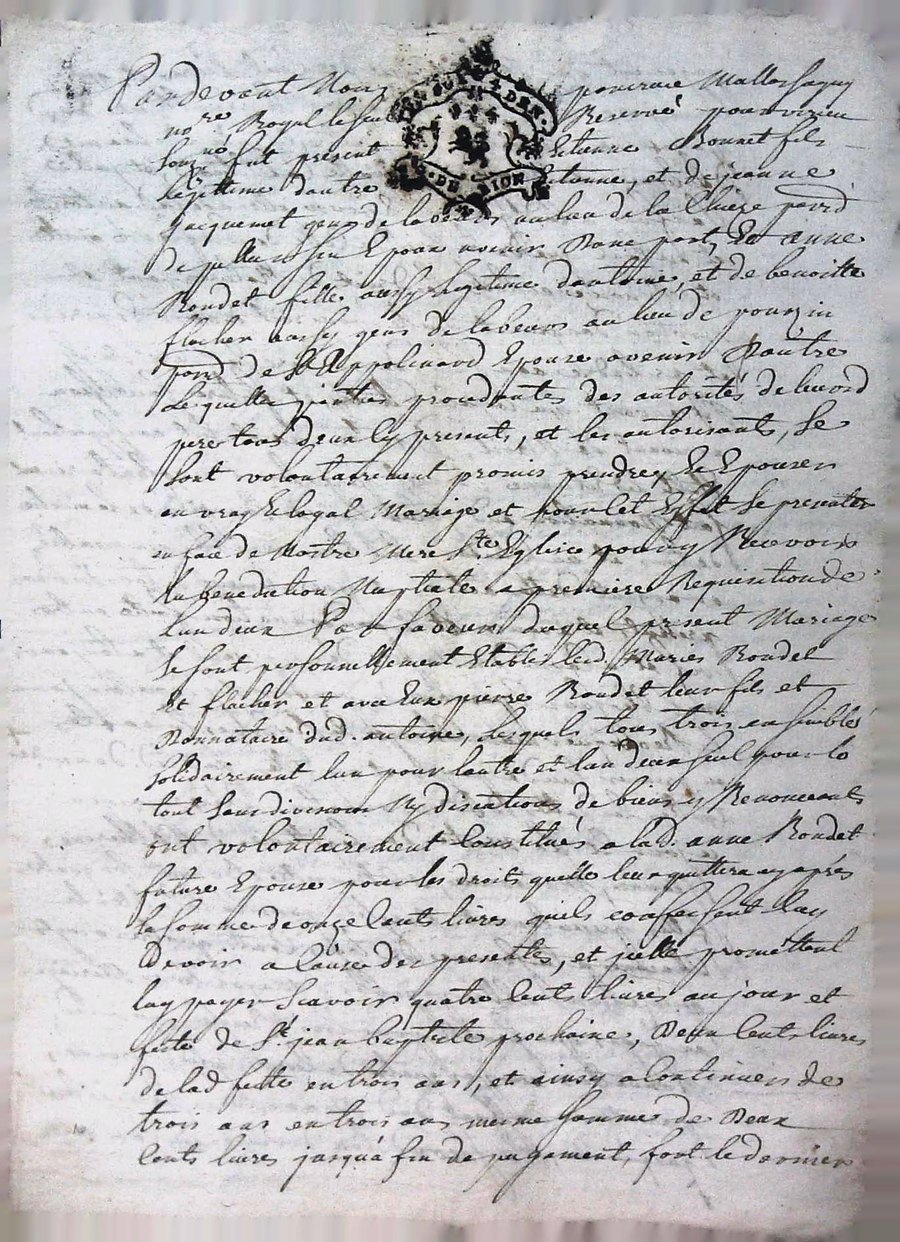 Pardevant Nous
no.re Royal Reservé pour
souz.né fut present Etienne Bonnet fils
legittime dautre Etienne, et de jeanne
jacquemet gens de labeurs au lieu de la
de pellussin Epoux avenir Dune part, Et anne
Rondet fille aussy legitime dantoine, et de benoitte
flacher aussy gens de labeurs au lieu de pourzin
parr.d de St Appolinard Epouse avenir Dautre
Lesquelles parties procedantes des autorités de leursd
peres tous deux icy presents, et les autorisants, se
sont volontairement promis prendre, Et Epouser
en vray Et legal Mariage et pour cet Effet se presenter
en face de Nostre Mere Ste Eglice pour y Recevoir
la benediction Nuptiale a premiere Requisition de
lun deux En faveur duquel present Mariage
se sont personnellement Etablis lesd. Mariés Rondet
Et flacher et avec Eux pierre Rondet leur fils et
Donnataire dud. antoine, lesquels tous trois ensembles
solidairement lun pour lautre et lun deux seul pour le
tout sans division Ny discutions de biens y Renoncants
ont volontairement Constitués a lad. anne Rondet
future Epouse pour les droits quelle leur quittera cy après
la somme de onze Cents livres quils confessent luy
Devoir a Cause des presentes, et jcelle promettent
luy payer Scavoir quatre Cents livres au jour et
feste de St jean baptiste prochaine, Deux Cents livres
de lad feste en trois ans, et ainsy a Continuer de
trois ans en trois ans meme somme de Deux
Cents livres jusqu'a fin de payement, fort le dernier
DE RIOM